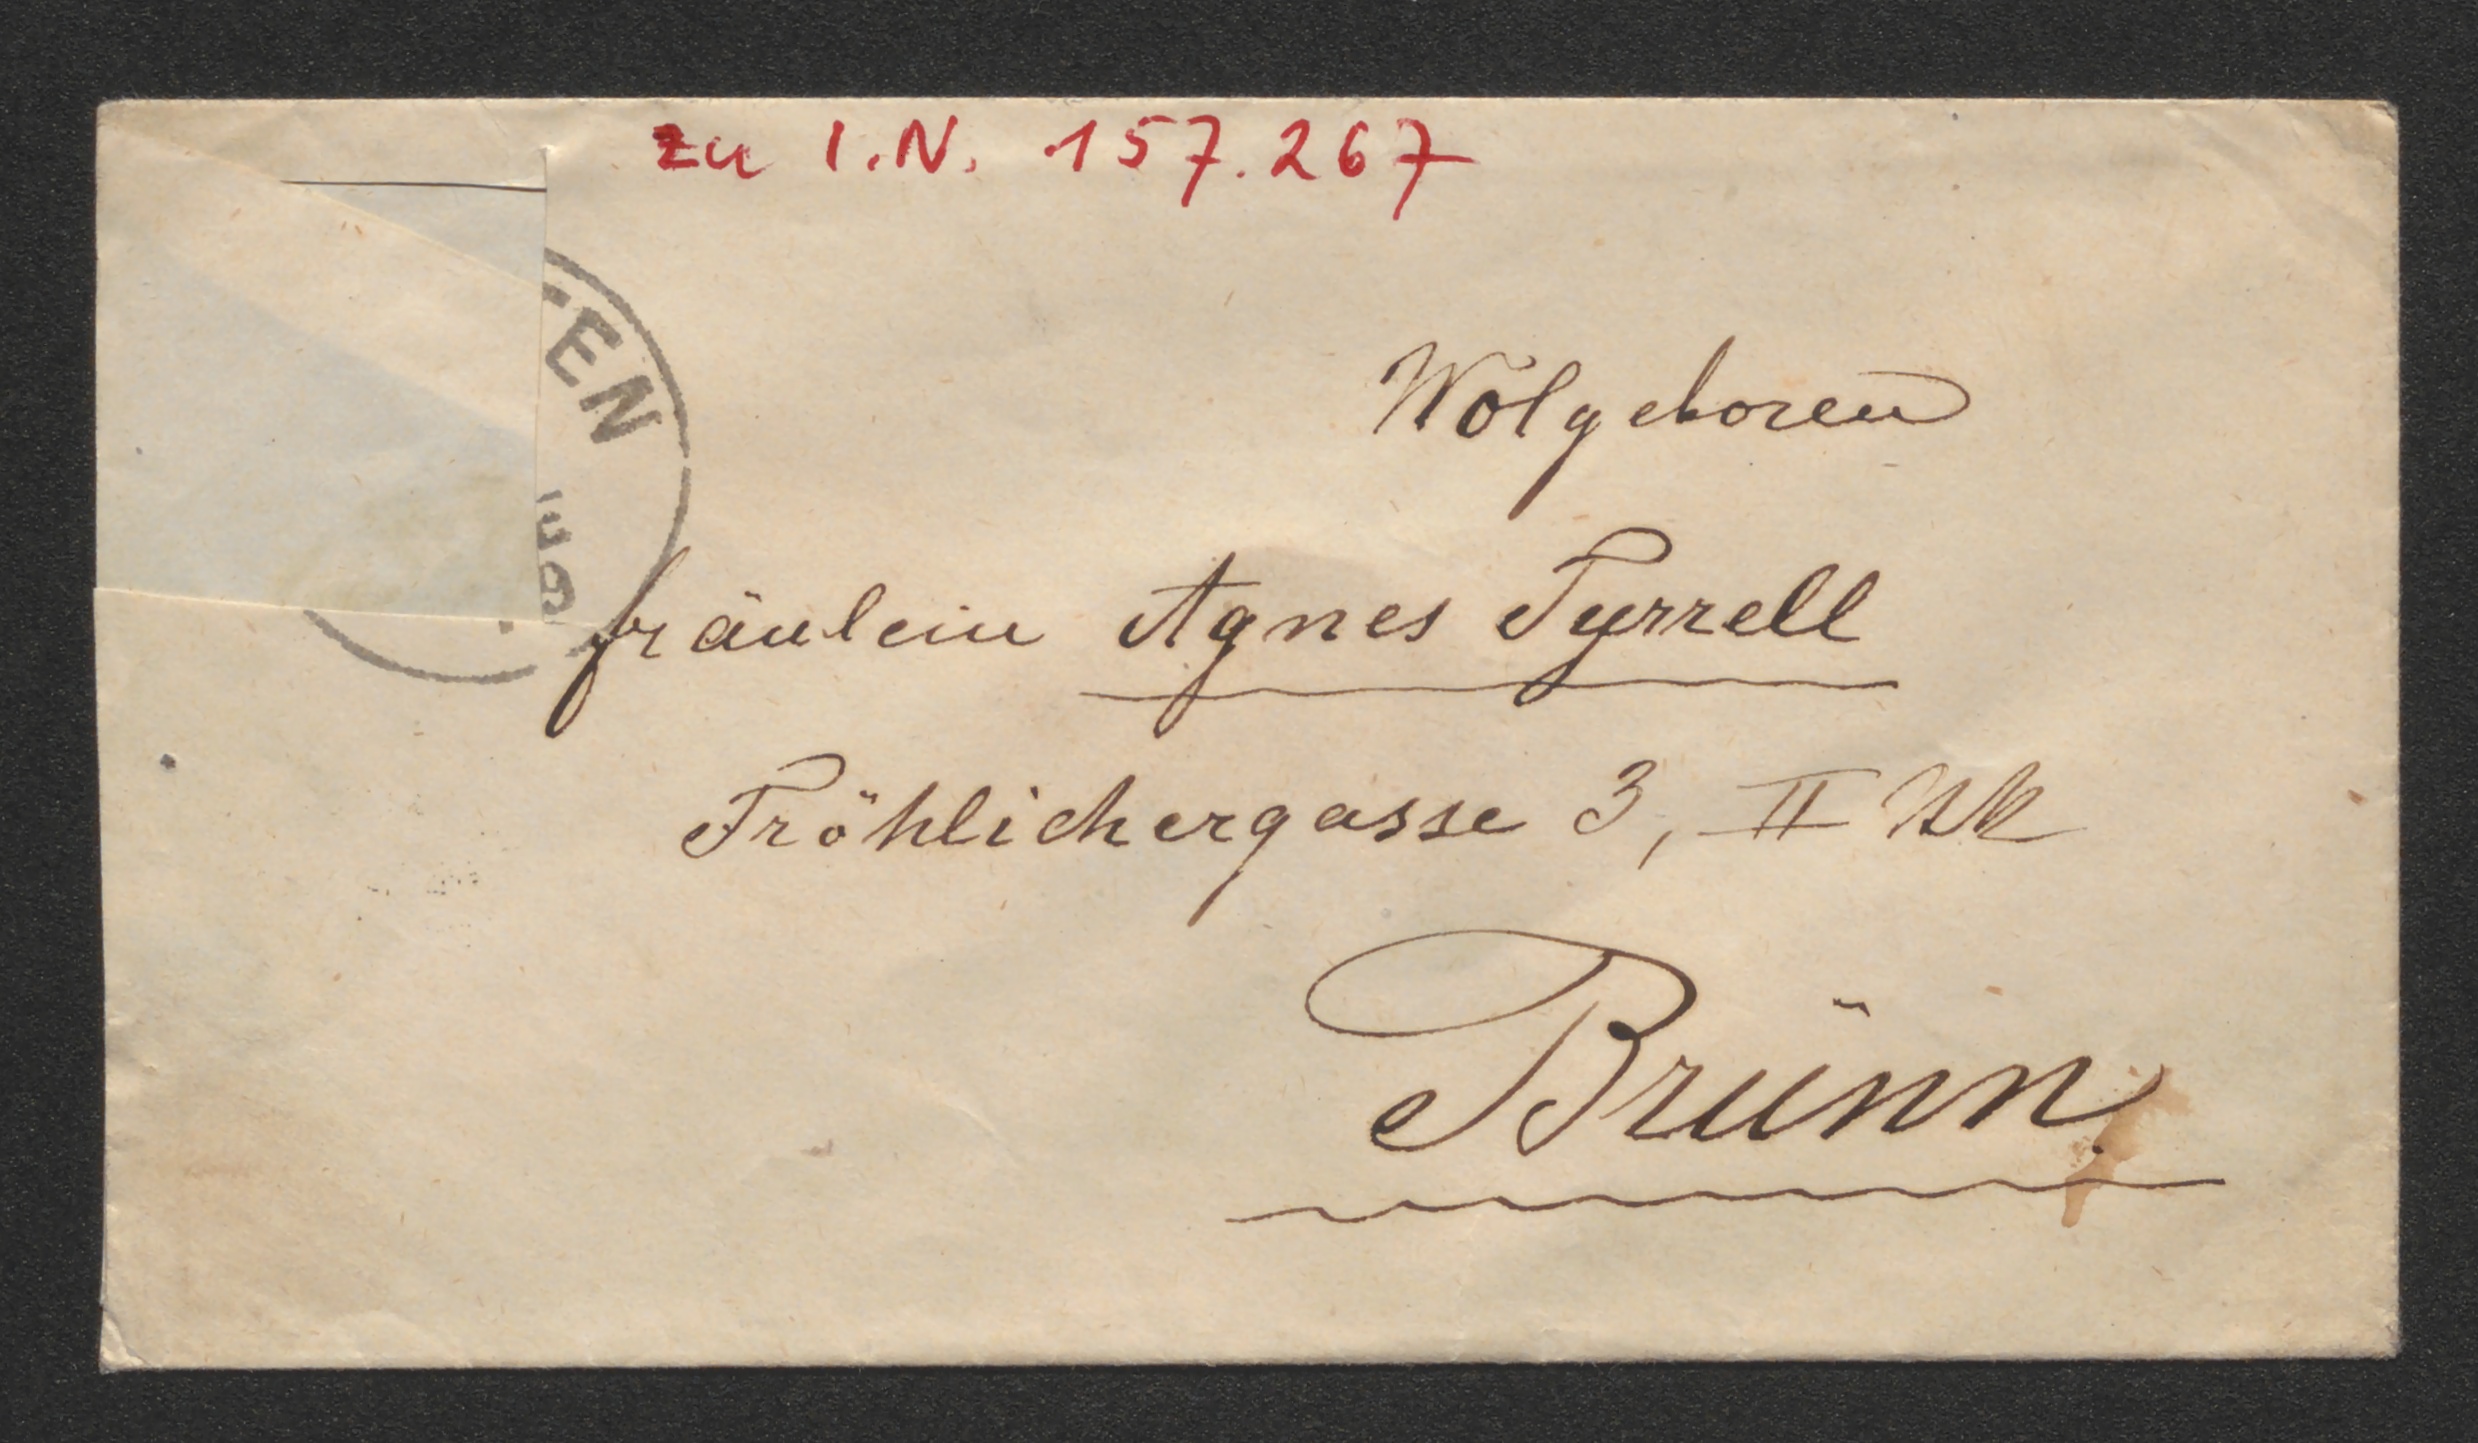 zu I.N. 157.267
TEN
Wolgeboren
Fräulein Agnes Tyrrell
Fröhlichergasse 3, II
Brünn